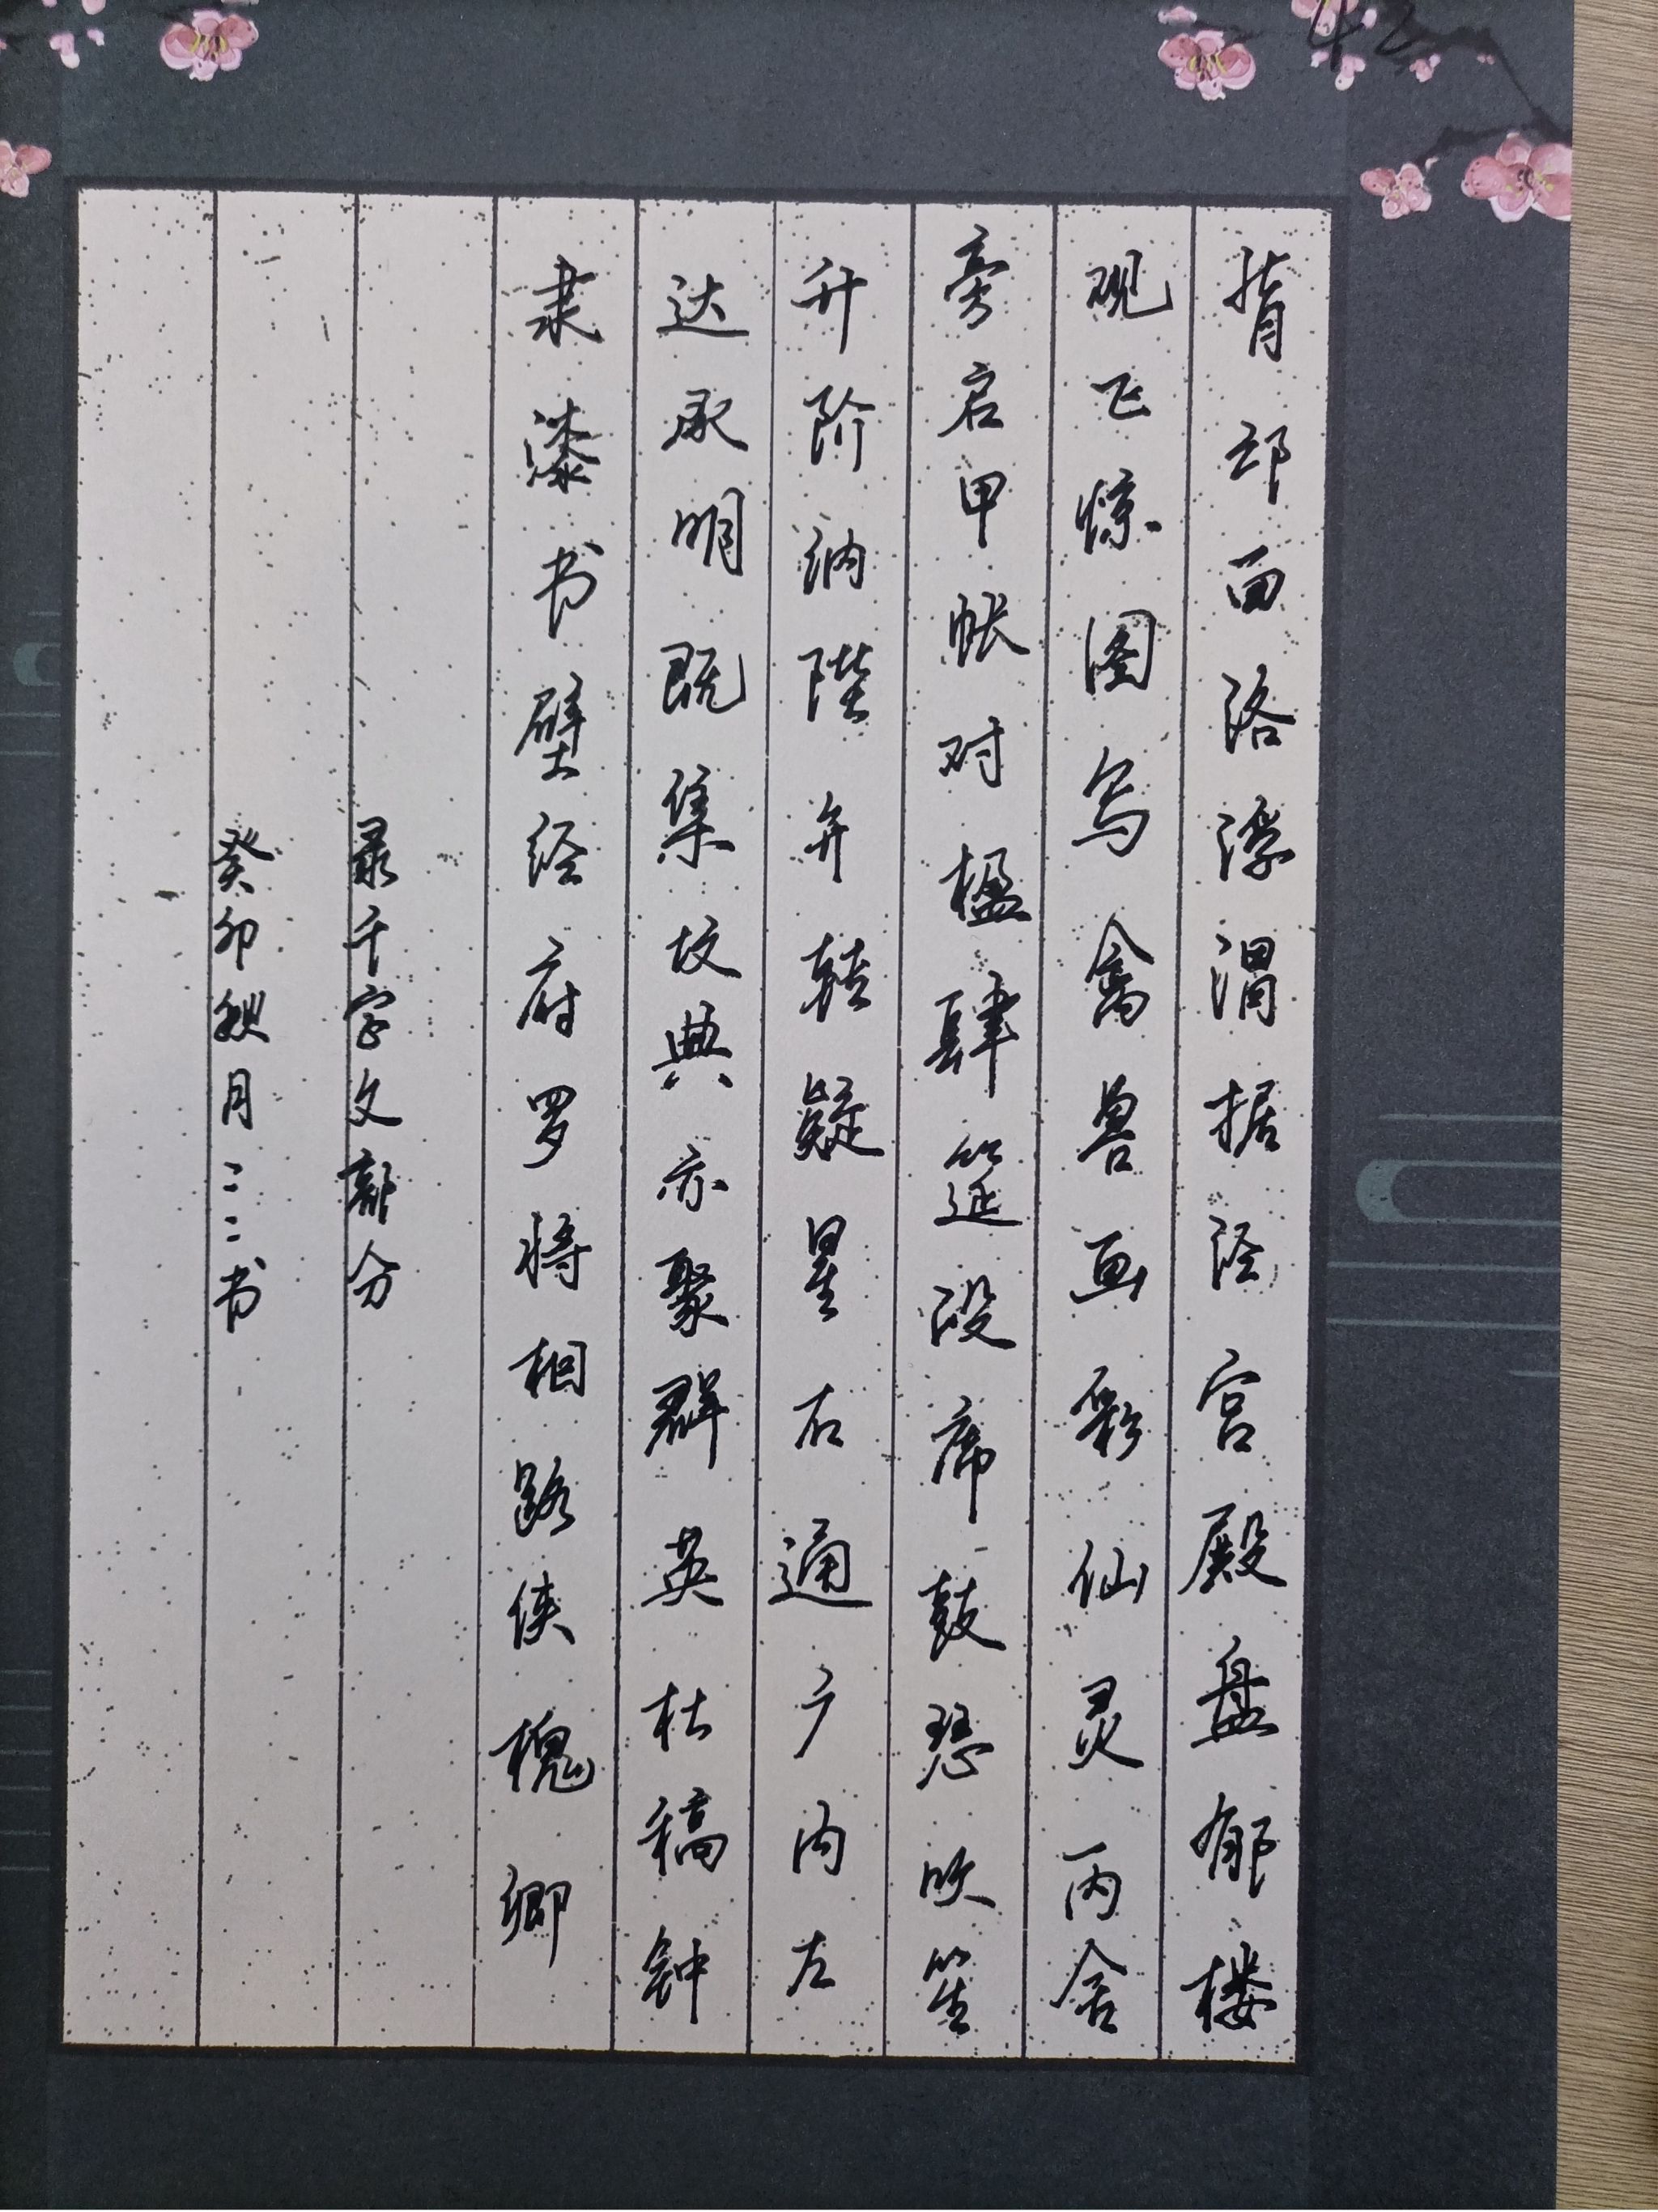 背邙面洛浮渭据泾宫殿盘郁楼
观飞惊图写禽兽画彩仙灵丙舍
旁启甲帐对楹肆筵设席鼓瑟吹笙
升阶纳陛弁转疑星右通广内左
达承明既集坟典亦聚群英杜稿钟
隶漆书壁经府罗将相路侠槐卿
录千字文部分
癸卯秋月三二书
42